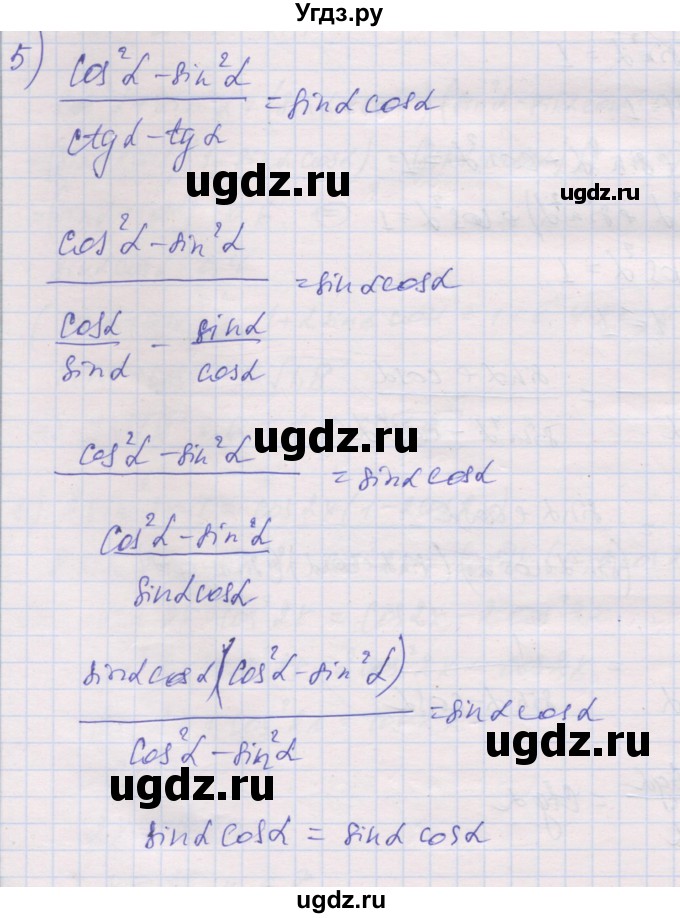 Угдз.ру
5) (cos²α – sin²α)/(ctgα – tgα) = sinα cosα
ugdz.ru
ugdz.ru
(cos²α – sin²α)/(cosα/sinα – sinα/cosα) = sinα cosα
ugdz.ru
(cos²α – sin²α)/((cos²α – sin²α)/(sinα cosα)) = sinα cosα
(sinα cosα (cos²α – sin²α))/(cos²α – sin²α) = sinα cosα
ugdz.ru
ugdz.ru
sinα cosα = sinα cosα
ugdz.ru